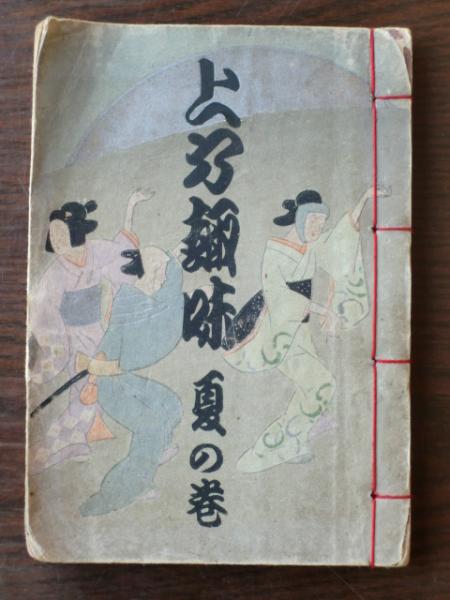 上方趣味 夏の巻